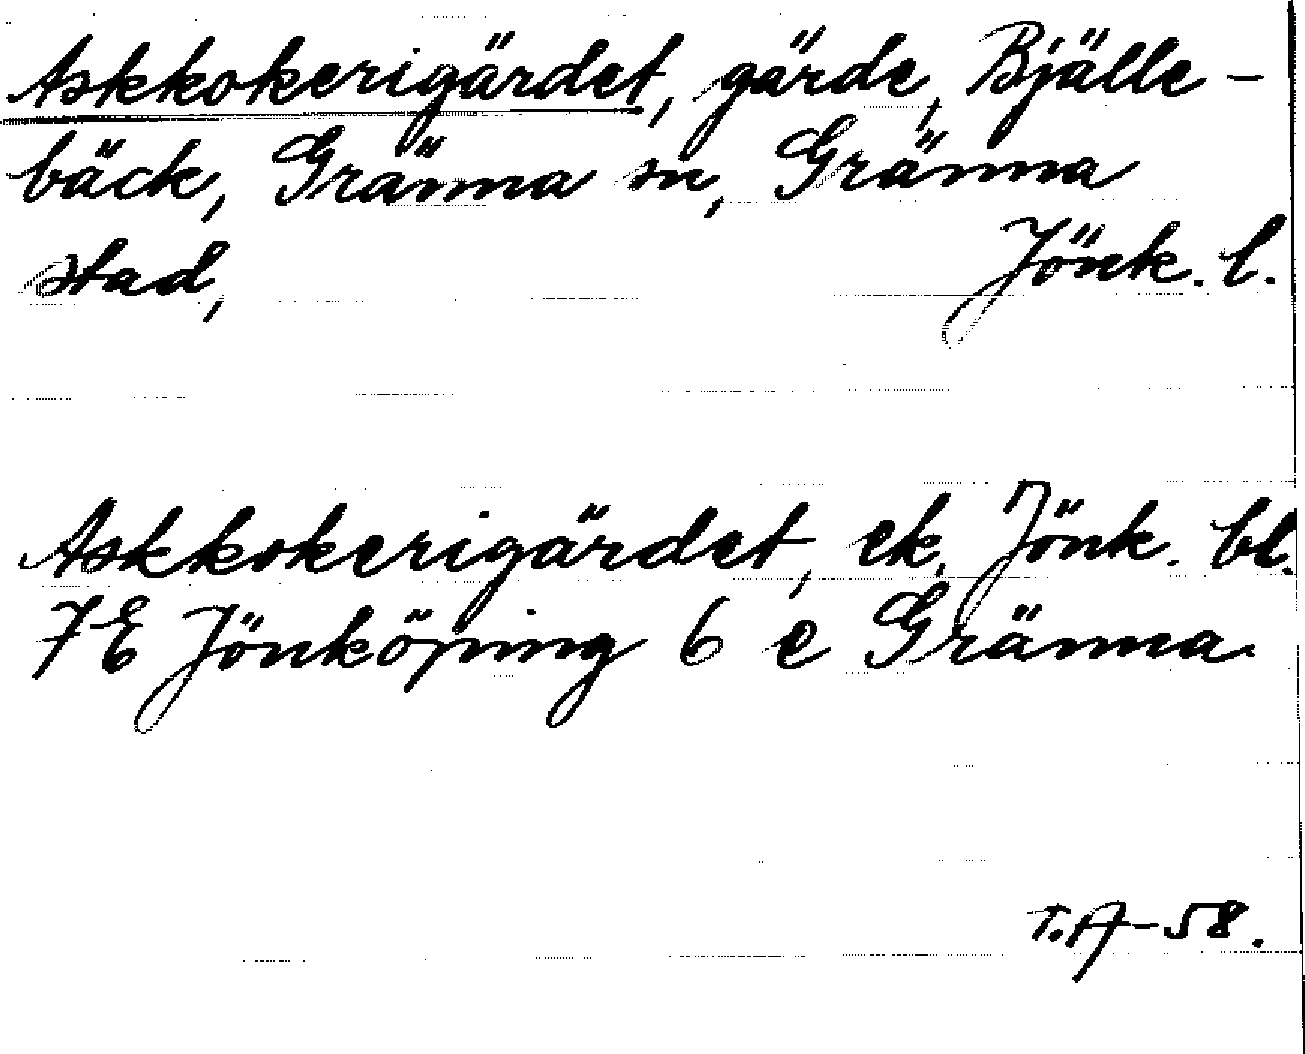 Askkokerigärdet, gärde, Bjälle-
bäck, Gränna sn, Gränna
stad, Jönk. l.
Askkokerigärdet, ek. Jönk. bl.
7E Jönköping 6 e Gränna.
T.A-58.